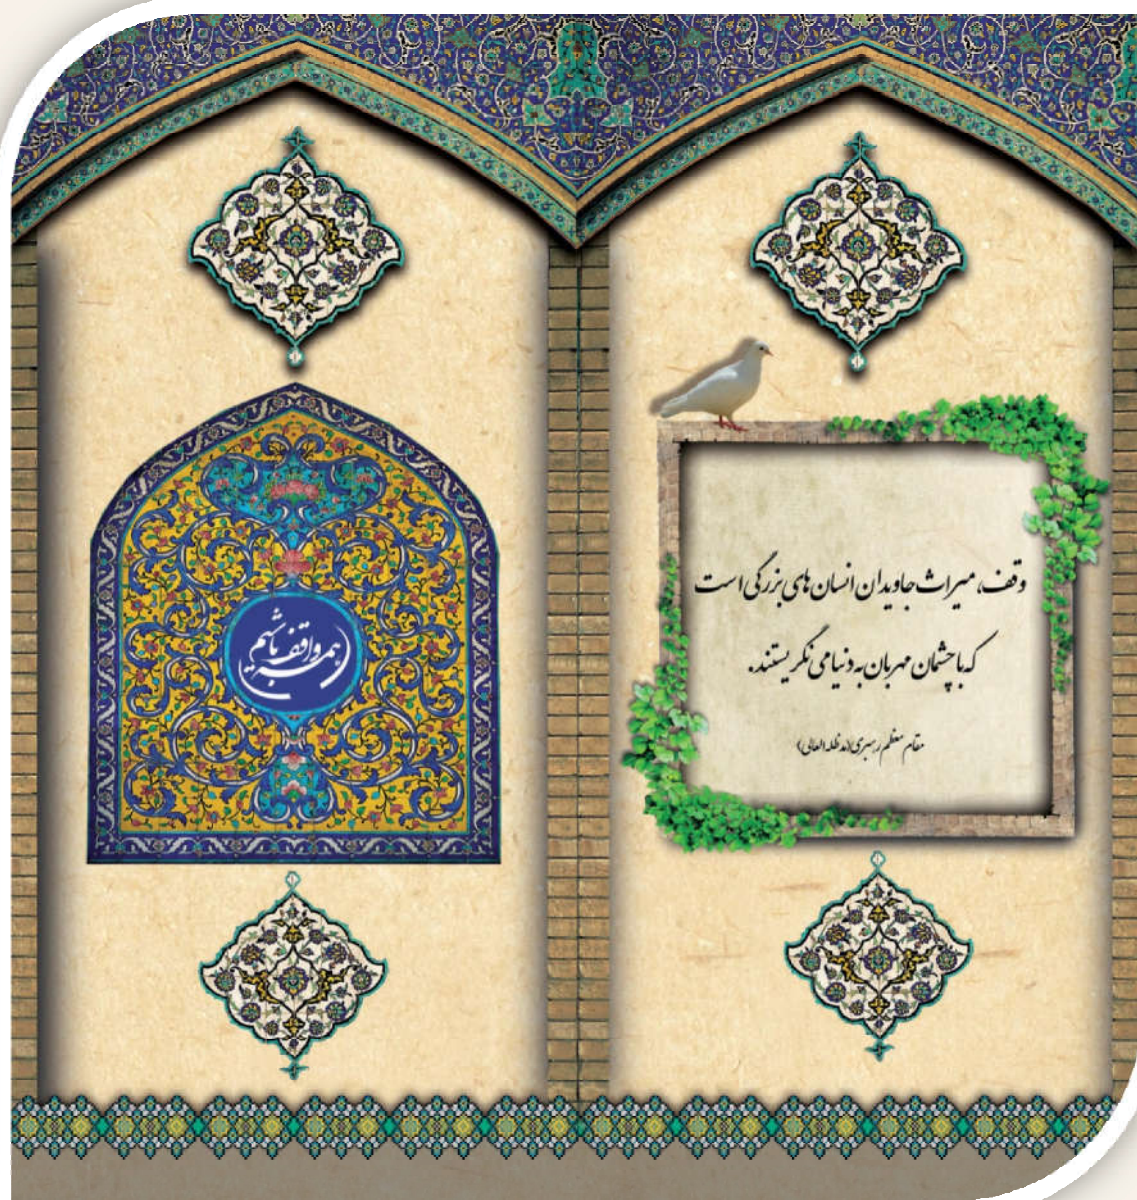 وقف، میراث جاویدان انسان های بزرگی است
که با چشمان مهربان به دنیا می نگریستند.
مقام معظم رهبری (مد ظله العالی)
همه واقف باشیم